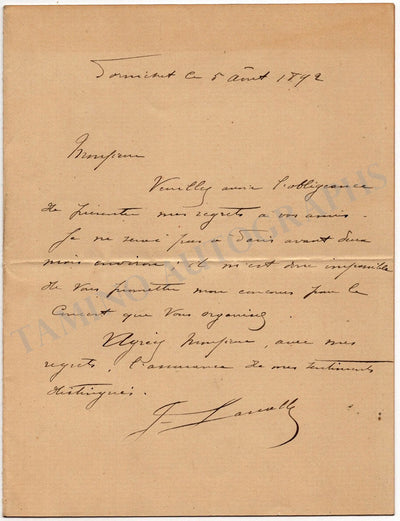 Pornichet le 5 Août 1892
Monsieur
Veuillez avoir l'obligeance
de présenter mes regrets à vos amis.
Je ne serai pas à Paris avant deux
mois environ il m'est donc impossible
de vous promettre mon concours pour le
Concert que vous organisez
Agréez Monsieur, avec mes
regrets, l'assurance de mes sentiments
distingués.
J. Lassalle
TAMINO AUTOGRAPHS